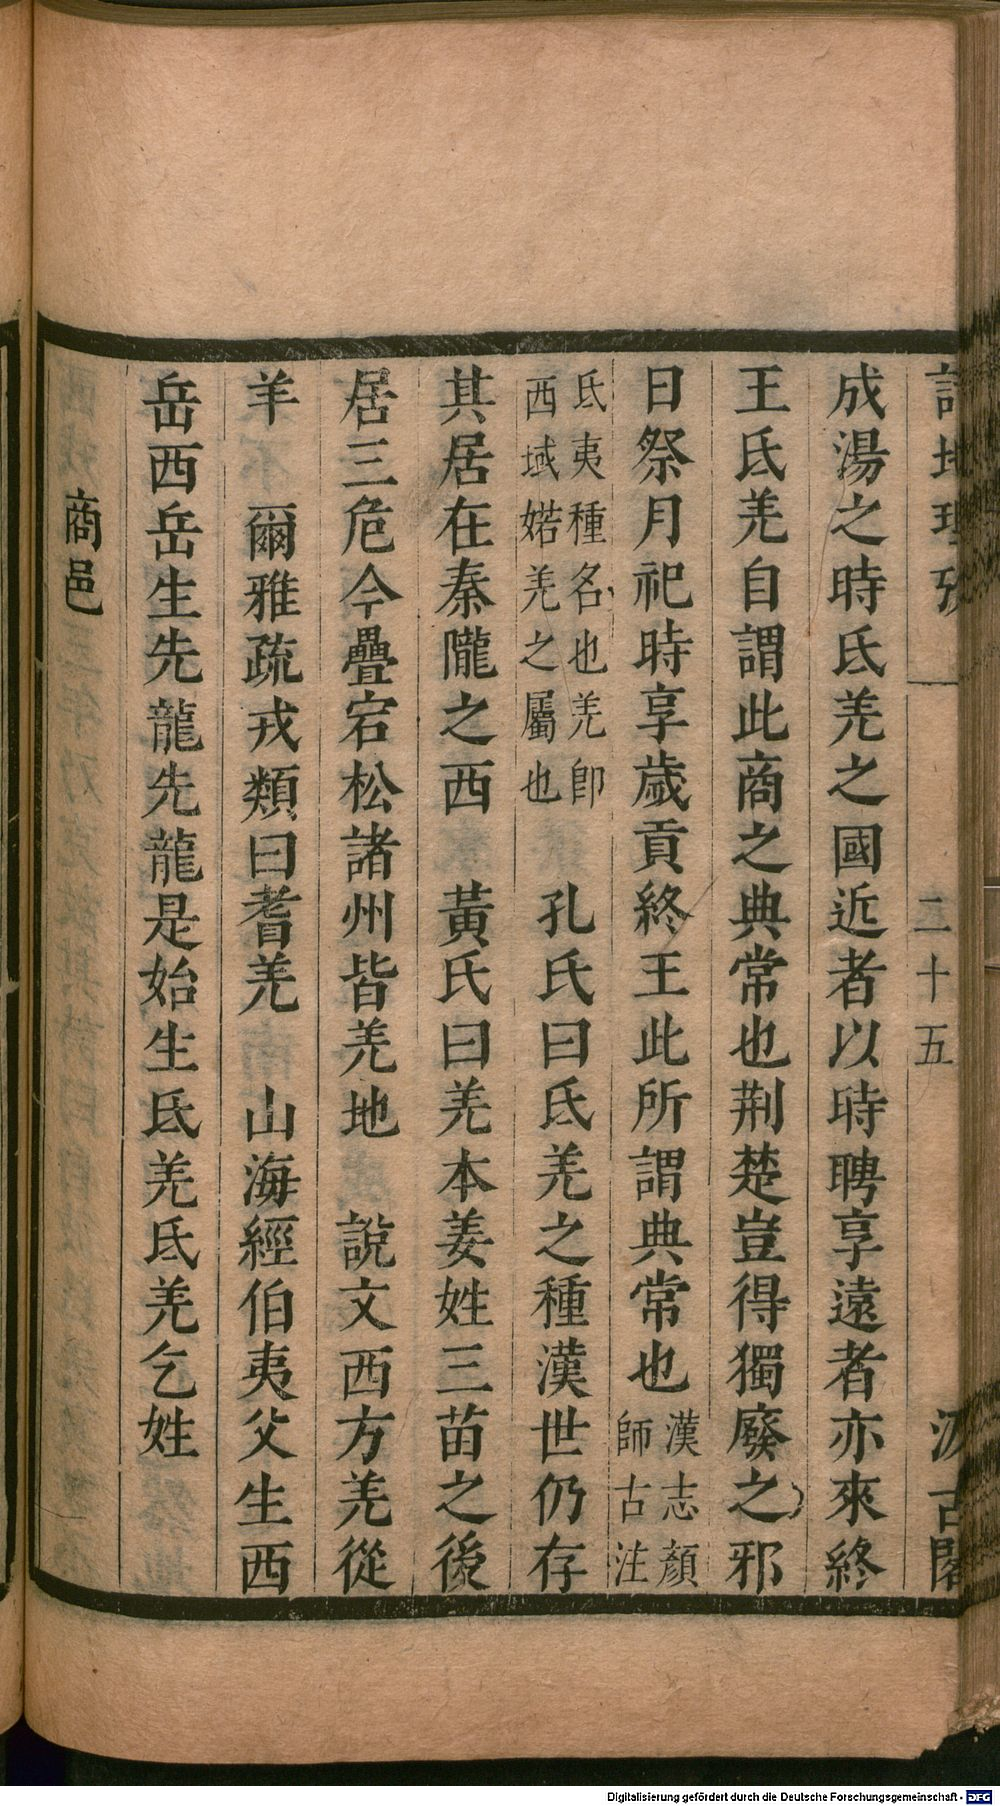 詩地理攷 二十五 汲古閣
成湯之時氐羌之國近者以時聘享遠者亦來終
王氐羌自謂此商之典常也荆楚豈得獨廢之邪
日祭月祀時享歲貢終王此所謂典常也漢志顔師古注
氐夷種名也羌卽西域婼羌之屬也 孔氏曰氐羌之種漢世仍存
其居在秦隴之西 黃氏曰羌本姜姓三苗之後
居三危今疊宕松諸州皆羌地 說文西方羌從
羊 爾雅疏戎類曰耆羌 山海經伯夷父生西
岳西岳生先龍先龍是始生氐羌氐羌乞姓
商邑
Digitalisierung gefördert durch die Deutsche Forschungsgemeinschaft - DFG